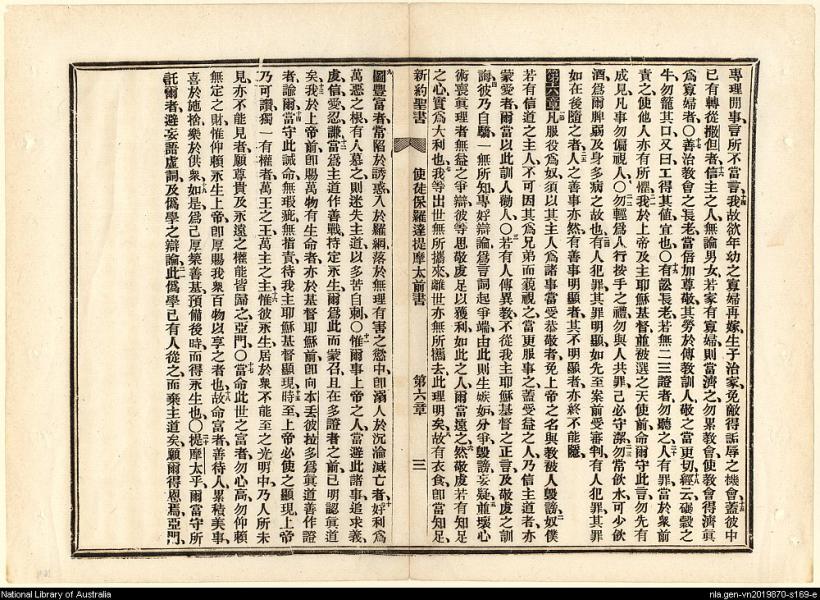 專理閒事、言所不當言、我故欲年幼之寡婦再嫁、生子治家、免敵得詬辱之機會、蓋彼中
已有轉從撒但者、信主之人、無論男女、若家有寡婦、則當濟之、勿累教會、使教會得濟眞
爲寡婦者、〇善治教會之長老、當倍加尊敬、其勞於傳教訓人、敬之當更切、經云、碾穀之
牛、勿籠其口、又曰、工得其值宜也、〇有訟長老、若無二三證者、勿聽之、人有罪、當於衆前
責之、使他人亦有所懼、我於上帝及主耶穌基督、並被選之天使前、命爾守此言、勿先有
成見、凡事勿偏視人、〇勿輕爲人行按手之禮、勿與人共罪、己必守潔、勿常飲水、可少飲
酒、爲爾脾弱及身多病之故也、有人犯罪、其罪明顯、如先至案前受審判、有人犯罪、其罪
如在後隨之者、人之善事亦然、有善事明顯者、其不明顯者亦終不能隱、
第六章 凡服役爲奴、須以其主人爲諸事當受恭敬者、免上帝之名與教被人毀謗、奴僕
若有信道之主人、不可因其爲兄弟而藐視之、當更服事之、蓋受益之人、乃信主道者、亦
蒙愛者、爾當以此訓人勸人、〇若有人傳異教、不從我主耶穌基督之正言、及敬虔之訓
誨、彼乃自驕、一無所知、專好辯論、爲言詞起爭端、由此則生嫉妒分爭毀謗妄疑、並壞心
術喪眞理者無益之爭辯、彼等思敬虔足以獲利、如此之人、爾當遠之、然敬虔若有知足
之心、實爲大利也、我等出世無所攜來、離世亦無所攜去、此理明矣、故有衣食、卽當知足、
新約聖書 使徒保羅達提摩太前書 第六章 三
圖豐富者、常陷於誘惑、入於羅網、落於無理有害之慾中、卽溺人於沉淪滅亡者、好利爲
萬惡之根、有人慕之、則迷失主道、以多苦自刺、〇惟爾事上帝之人、當避此諸事、追求義、
虔、信、愛、忍、謙、當爲主道作善戰、持定永生、爾爲此而蒙召、且在多證者之前、已明認眞道
矣、我於上帝前、卽賜萬物有生命者、亦於基督耶穌前、卽向本丟彼拉多爲眞道善作證
者、諭爾當守此誡命、無瑕疵、無指責、待我主耶穌基督顯現、時至、上帝必使之顯現、上帝
乃可讚獨一有權者、萬王之王、萬主之主、惟彼永生、居於衆不能至之光明中、乃人所未
見、亦不能見者、願尊貴及永遠之權能、皆歸之、亞門、〇當命此世之富者、勿心高、勿仰賴
無定之財、惟仰賴永生上帝、卽厚賜我衆百物以享之者也、故命富者善待人、累積美事、
喜於施捨、樂於供衆、如是爲己厚築善基、預備後時、而得永生也、〇提摩太乎、爾當守所
託爾者、避妄語虛詞、及僞學之辯論、此僞學已有人從之、而棄主道矣、願爾得恩焉、亞門、
National Library of Australia
nla.gen-vn2019870-s169-e